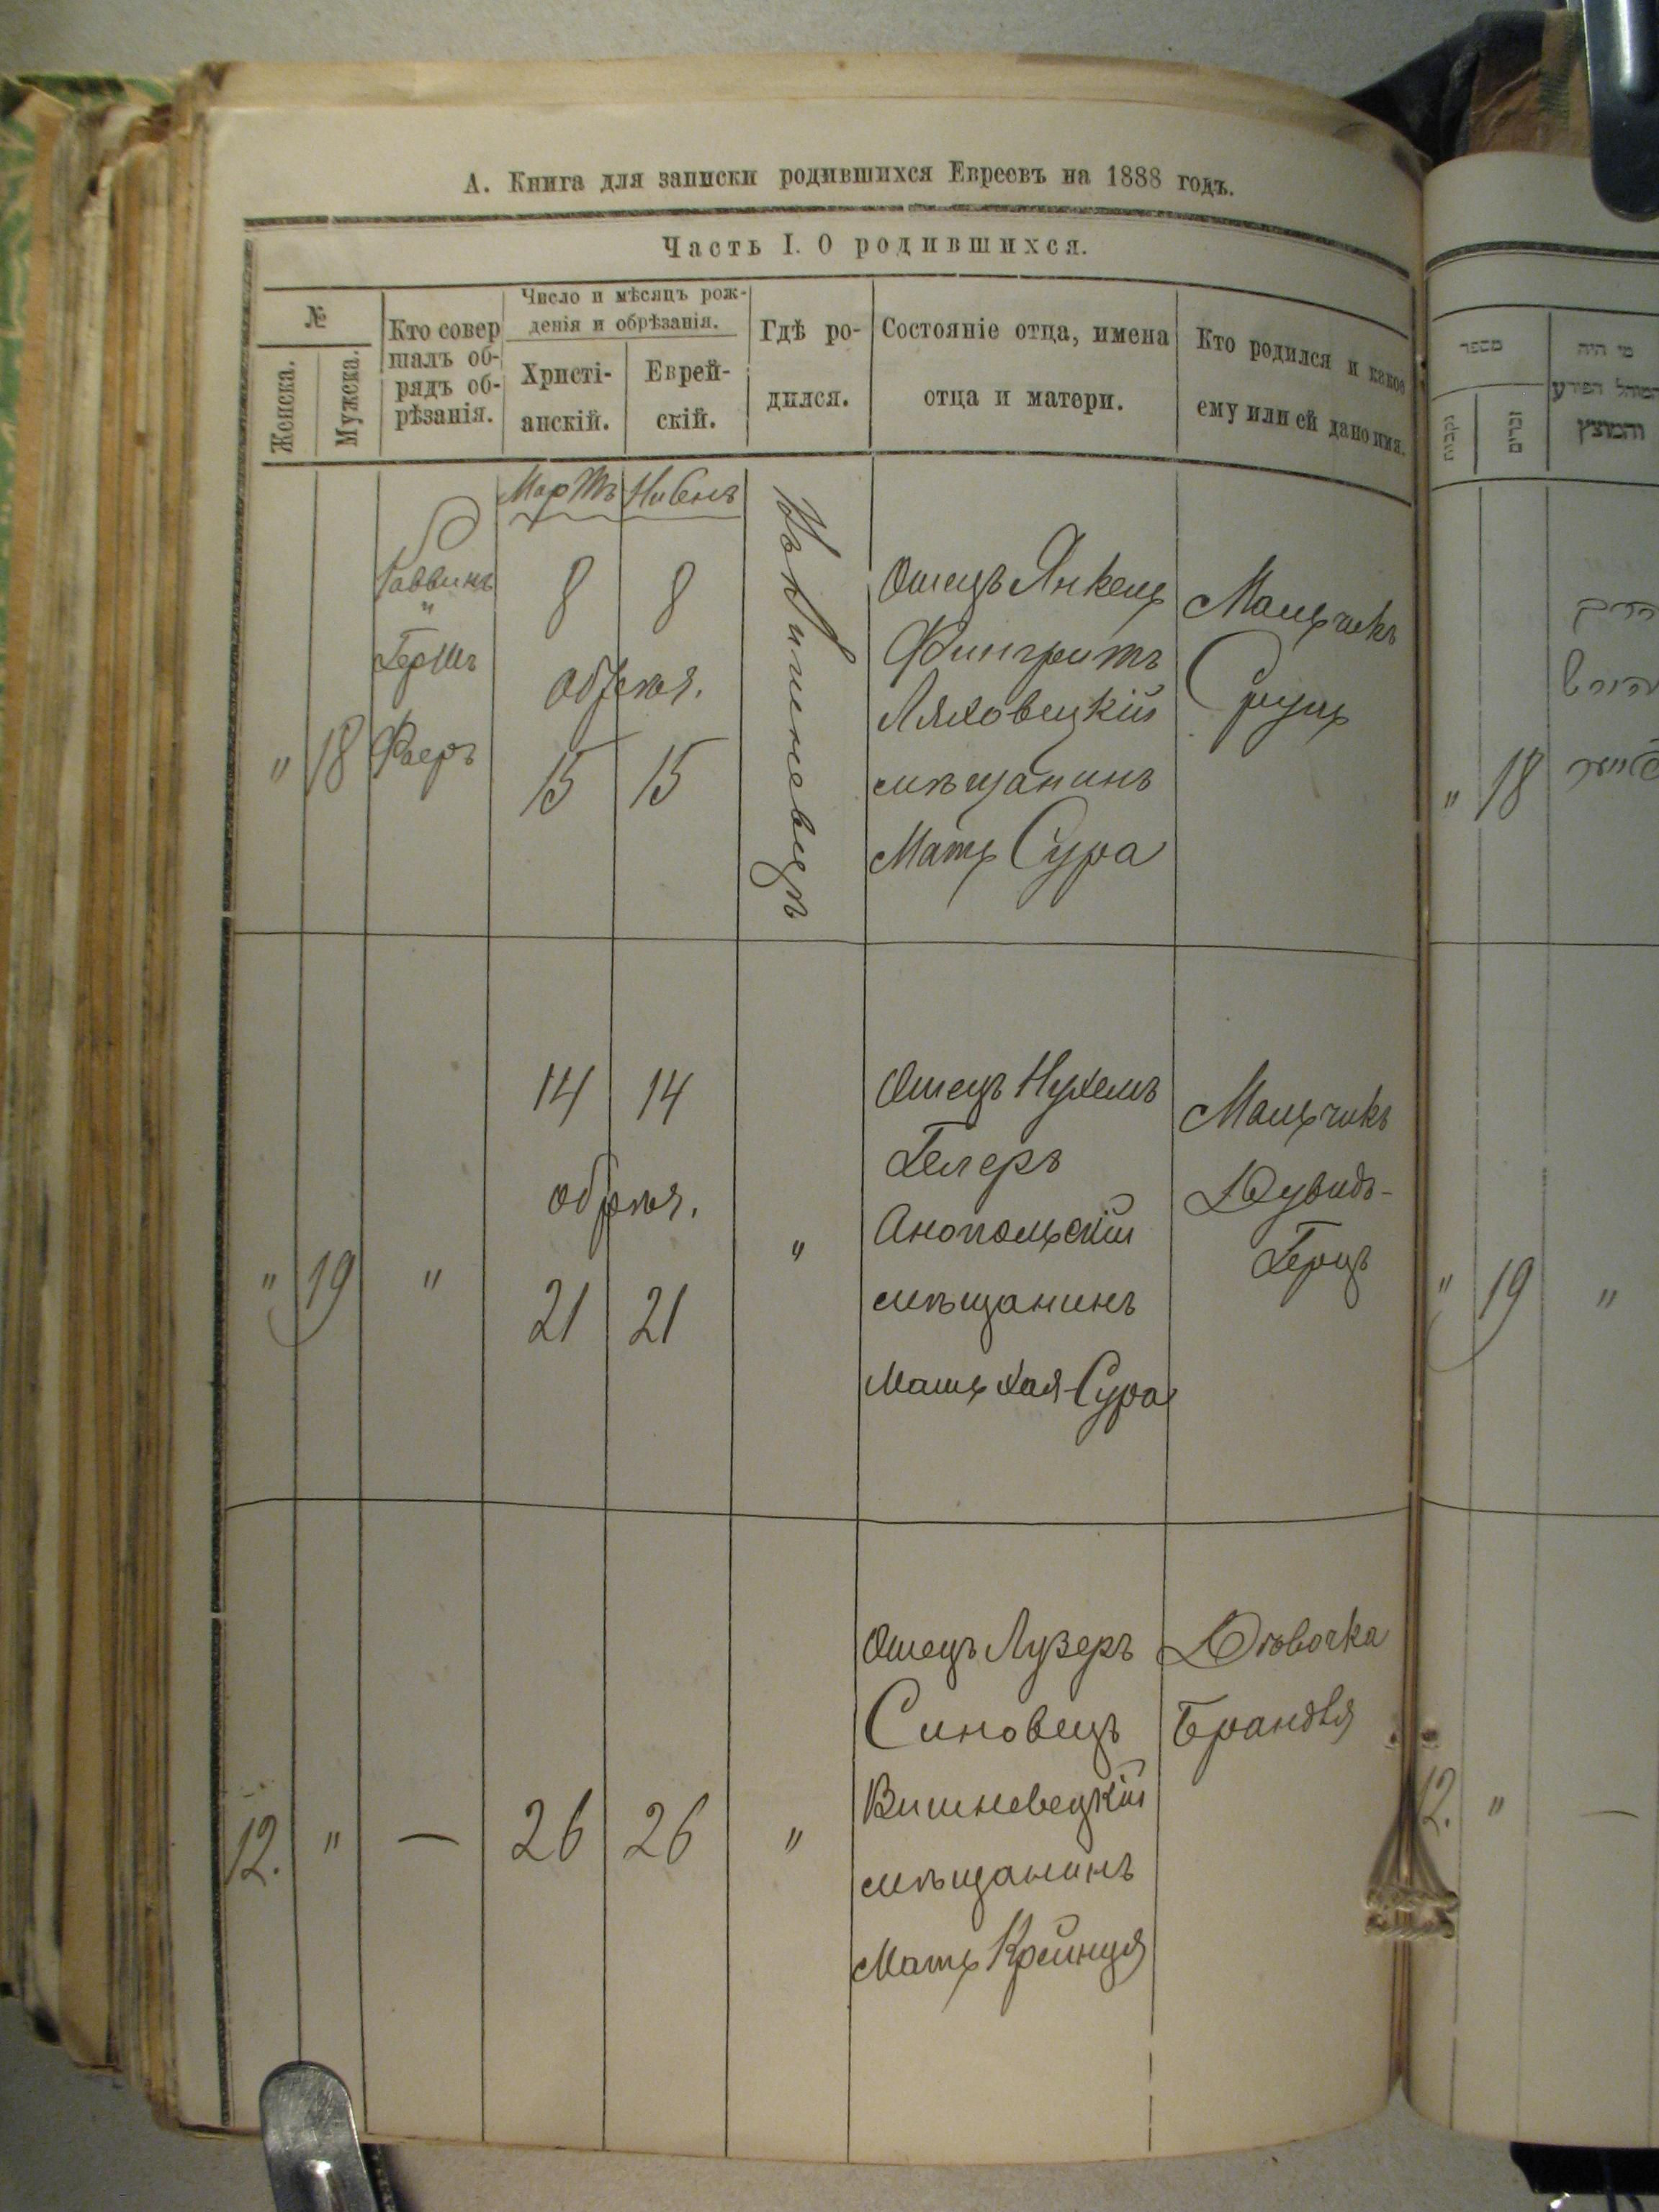 А. Книга для записки родившихся Евреевъ на 1888 годъ.
Часть I. О родившихся.
№
Женска.
Мужска.
Кто совер
шалъ об-
рядъ об-
рѣзанія.
Число и мѣсяцъ рож-
денія и обрѣзанія.
Христі-
анскій.
Еврей-
скій.
Гдѣ ро-
дился.
Состояніе отца, имена
отца и матери.
Кто родился и какое
ему или ей дано имя.
Мартъ Нисенъ
" 18
Раввинъ
"
Гершъ
Фаеръ
8 8
обрѣз.
15 15
Отецъ Янкель
Фингрутъ
Ляховецкій
мѣщанинъ
Мать Сура
Мальчикъ
Сруль
" 19 "
14 14
обрѣз.
21 21
"
Отецъ Нухемъ
Гелеръ
Анопольскій
мѣщанинъ
Мать Хая-Сура
Мальчикъ
Дувидъ-
Герцъ
12. " — 26 26 "
Отецъ Лузеръ
Синовецъ
Вишневецкій
мѣщанинъ
Мать Крейнця
Дѣвочка
Брандля
מספר
נקבות
זכרים
מי היה
המוהל הפורע
והמוצץ
" 18
" 19 "
12. " —